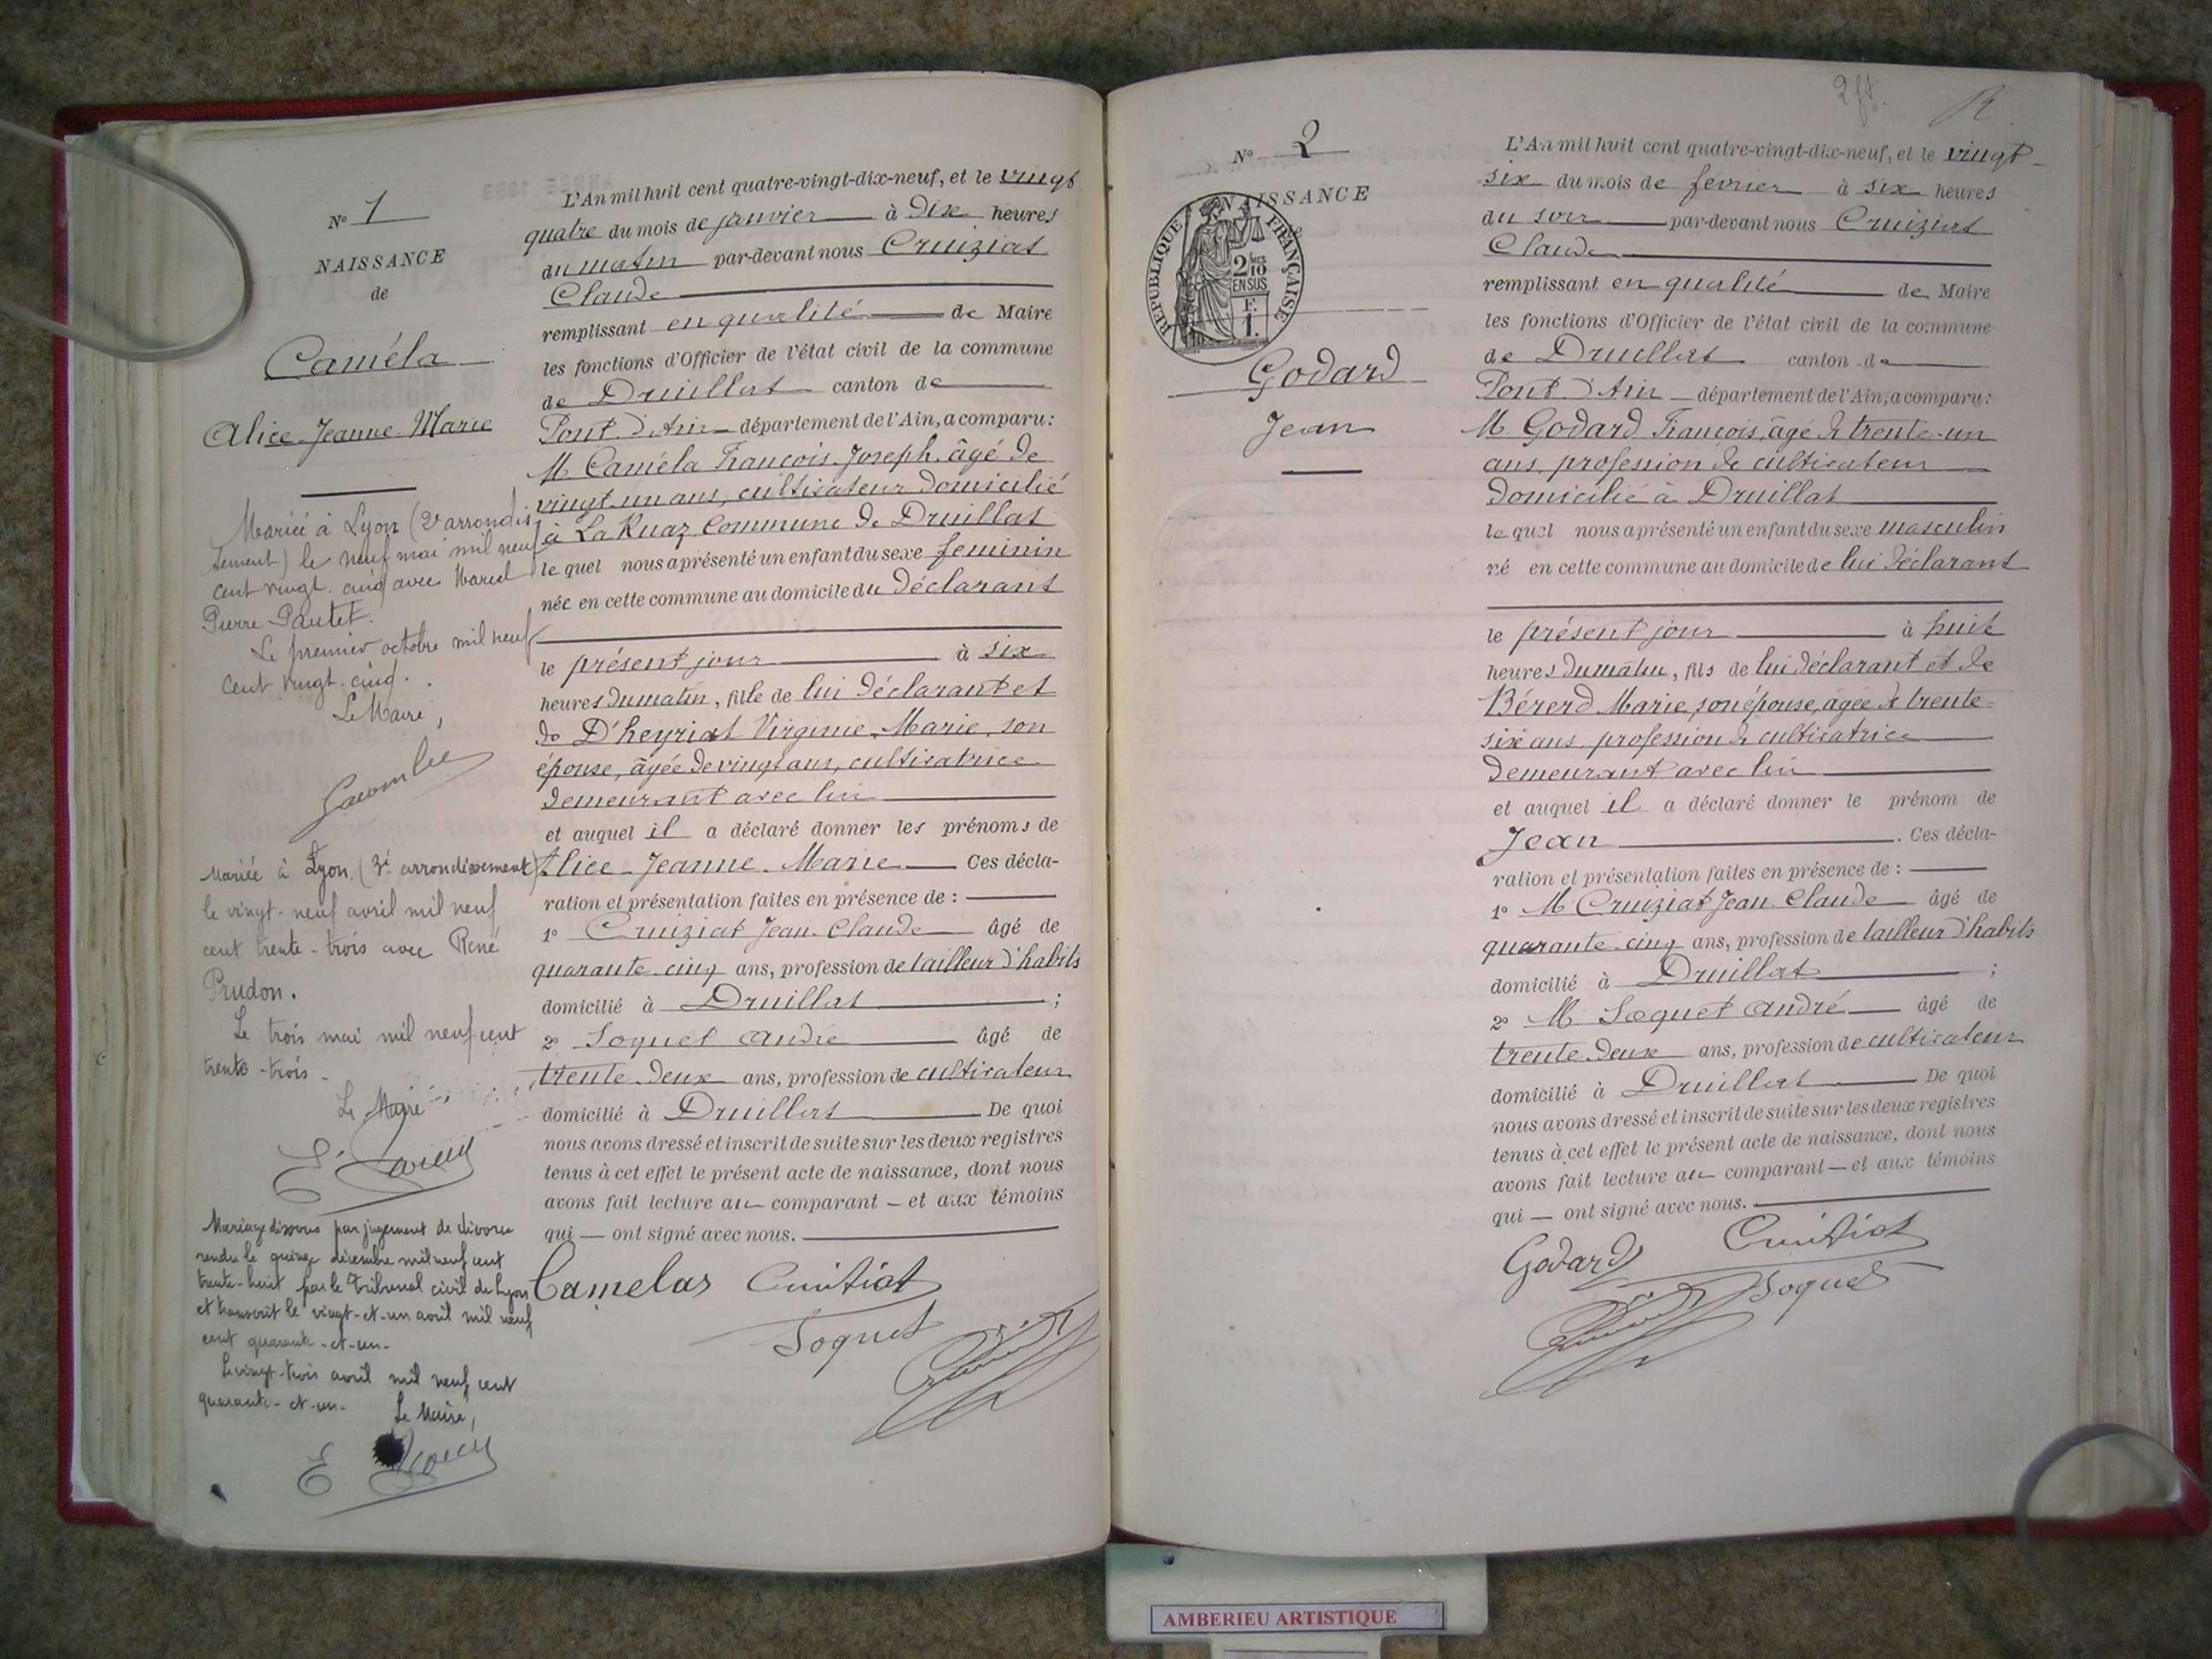 N° 1
NAISSANCE
de
Caméla
Alice-Jeanne-Marie
Mariée à Lyon (2e arrondis
sement) le neuf mai mil neuf
cent vingt-cinq avec Marcel
Pierre Pautet.
Le premier octobre mil neuf
cent vingt-cinq.
Le Maire,
Mariée à Lyon (3e arrondissement)
le vingt-neuf avril mil neuf
cent trente-trois avec René
Prudon.
Le trois mai mil neuf cent
trente-trois-
Le Maire
Mariage dissous par jugement de divorce
rendu le quinze décembre mil neuf cent
trente-huit par le Tribunal civil de Lyon
et transcrit le vingt-et-un avril mil neuf
cent quarante-et-un-
Le vingt-trois avril mil neuf cent
quarante-et-un-
Le Maire,
L'An mil huit cent quatre-vingt-dix-neuf, et le vingt
quatre du mois de janvier à dix heures
du matin par-devant nous Cruiziat
Claude
remplissant en qualité de Maire
les fonctions d'Officier de l'état civil de la commune
de Druillat canton de
Pont-d'Ain département de l'Ain, a comparu:
M. Caméla François-Joseph, âgé de
vingt-un ans, cultivateur domicilié
à La Ruaz Commune de Druillat
le quel nous a présenté un enfant du sexe féminin
née en cette commune au domicile du déclarant
le présent jour à six
heures du matin, fille de lui déclarant et
de D'heyriat Virginie-Marie, son
épouse, âgée de vingt ans, cultivatrice
demeurant avec lui
et auquel il a déclaré donner les prénoms de
Alice-Jeanne-Marie Ces décla-
ration et présentation faites en présence de :
1° Cruiziat Jean-Claude âgé de
quarante-cinq ans, profession de tailleur d'habits
domicilié à Druillat ;
2° Soquet André âgé de
trente-deux ans, profession de cultivateur
domicilié à Druillat De quoi
nous avons dressé et inscrit de suite sur les deux registres
tenus à cet effet le présent acte de naissance, dont nous
avons fait lecture au comparant — et aux témoins
qui — ont signé avec nous.
Camelas Cruiziat
Soquet
R
N° 2
NAISSANCE
REPUBLIQUE FRANÇAISE
2/10 EN SUS
F.
1.
Godard
Jean
L'An mil huit cent quatre-vingt-dix-neuf, et le vingt-
six du mois de février à six heures
du soir par-devant nous Cruiziat
Claude
remplissant en qualité de Maire
les fonctions d'Officier de l'état civil de la commune
de Druillat canton de
Pont-d'Ain département de l'Ain, a comparu:
M. Godard François, âgé de trente-un
ans, profession de cultivateur
domicilié à Druillat
le quel nous a présenté un enfant du sexe masculin
né en cette commune au domicile de lui déclarant
le présent jour à huit
heures du matin, fils de lui déclarant et de
Bérerd Marie, son épouse, âgée de trente-
six ans, profession de cultivatrice
demeurant avec lui
et auquel il a déclaré donner le prénom de
Jean . Ces décla-
ration et présentation faites en présence de :
1° M. Cruiziat Jean-Claude âgé de
quarante-cinq ans, profession de tailleur d'habits
domicilié à Druillat ;
2° M. Soquet André âgé de
trente-deux ans, profession de cultivateur
domicilié à Druillat De quoi
nous avons dressé et inscrit de suite sur les deux registres
tenus à cet effet le présent acte de naissance, dont nous
avons fait lecture au comparant — et aux témoins
qui — ont signé avec nous.
Godard Cruiziat
Soquet
AMBERIEU ARTISTIQUE